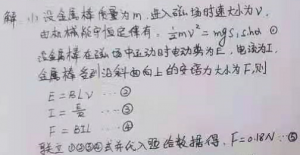 解. (1) 设金属棒质量为m, 进入磁场时速大小为v,
由机械能守恒定律有, ½mv² = mgs₁sinα ①
设金属棒在磁场中运动时电动势为E, 电流为I,
金属棒受到沿斜面向上的安培力大小为F, 则
E = BLv ··· ②
I = E/R ··· ③
F = BIL ··· ④
联立①②③④式并代入题给数据得, F=0.18N ··· ⑤